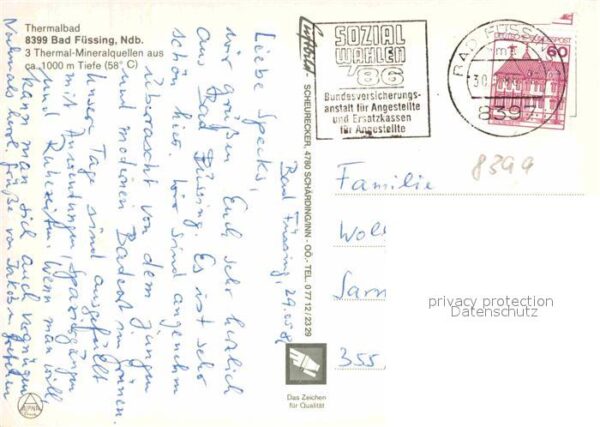 Thermalbad
8399 Bad Füssing, Ndb.
3 Thermal-Mineralquellen aus
ca. 1000 m Tiefe (58° C)
Bad Füssing, 29.05.86
Liebe Specks,
wir grüßen Euch sehr herzlich
aus Bad Füssing. Es ist sehr
schön hier. Wir sind angenehm
überrascht von dem jungen
und modernen Badeort im Grünen.
Unsere Tage sind ausgefüllt
mit Anwendungen, Spaziergängen
und Ruhezeiten. Wenn man will,
kann man sich auch vergnügen
Nochmals herzl. Grüße von Jakob
Luftbild
SCHEURECKER, 4780 SCHÄRDING/INN - OÖ.- TEL. 0 77 12 / 23 29
Das Zeichen
für Qualität
SOZIAL
WAHLEN
'86
Bundesversicherungs-
anstalt für Angestellte
und Ersatzkassen
für Angestellte
BAD FÜSSING
30
8397
60
8399
Familie
Wol
Sarn
355
privacy protection
Datenschutz